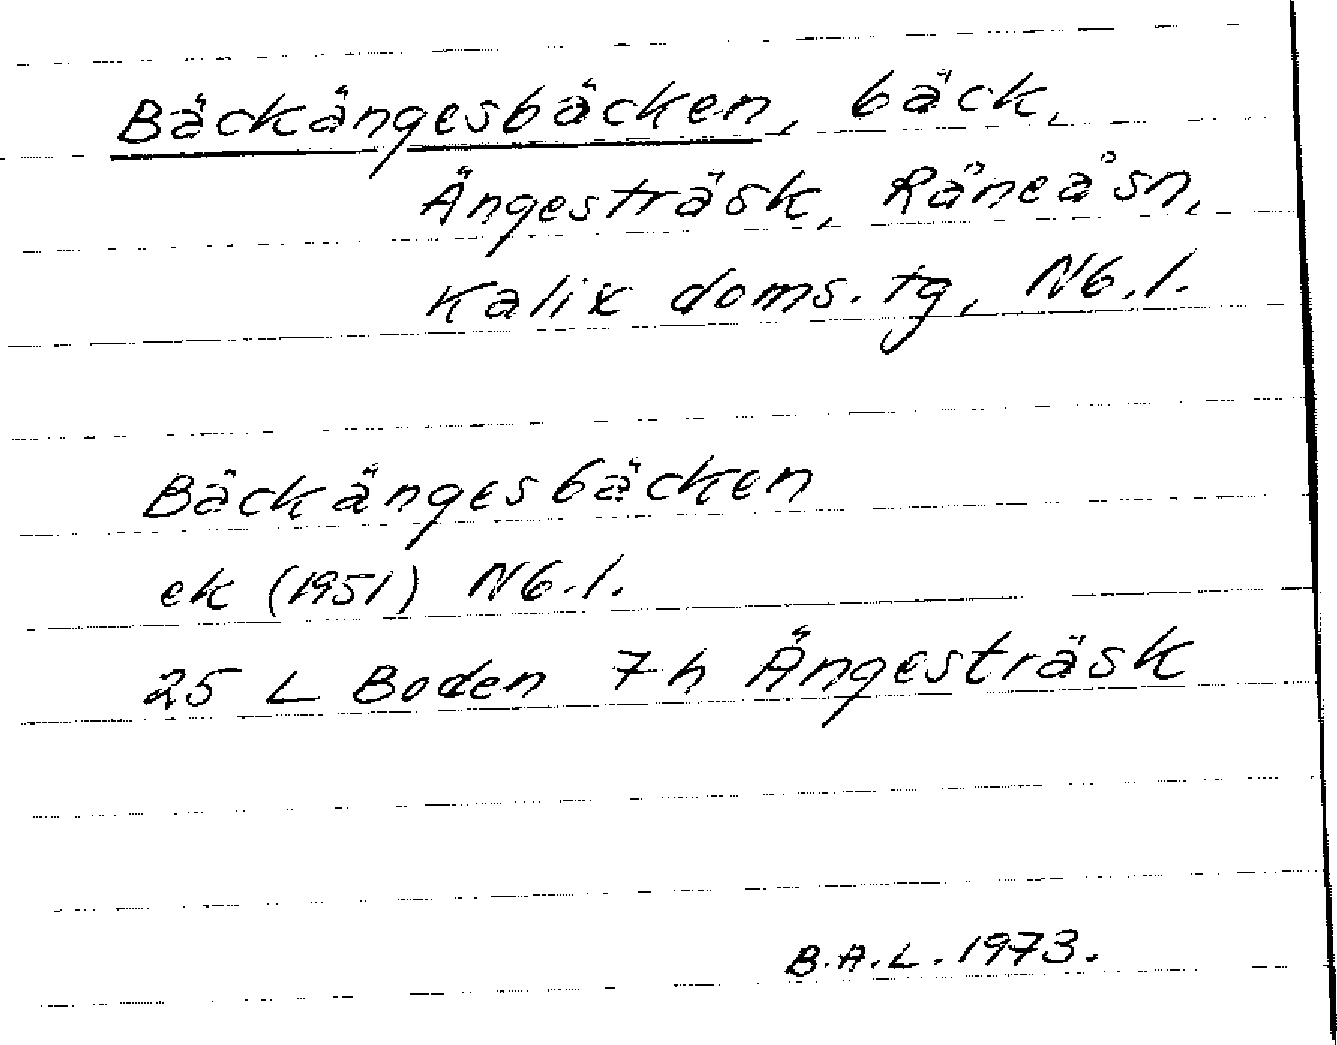 Bäckängesbäcken, bäck,
Ängesträsk, Råneå sn,
Kalix doms. tg, Nb. l.
Bäckängesbäcken
ek (1951) Nb. l.
25 L Boden 7 h Ängesträsk
B.A.L. 1973.